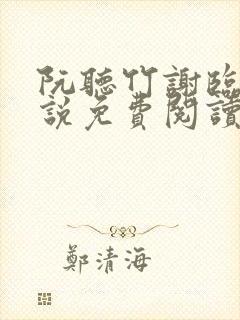 阮聽竹謝臨
說免費閱讀
鄭清海